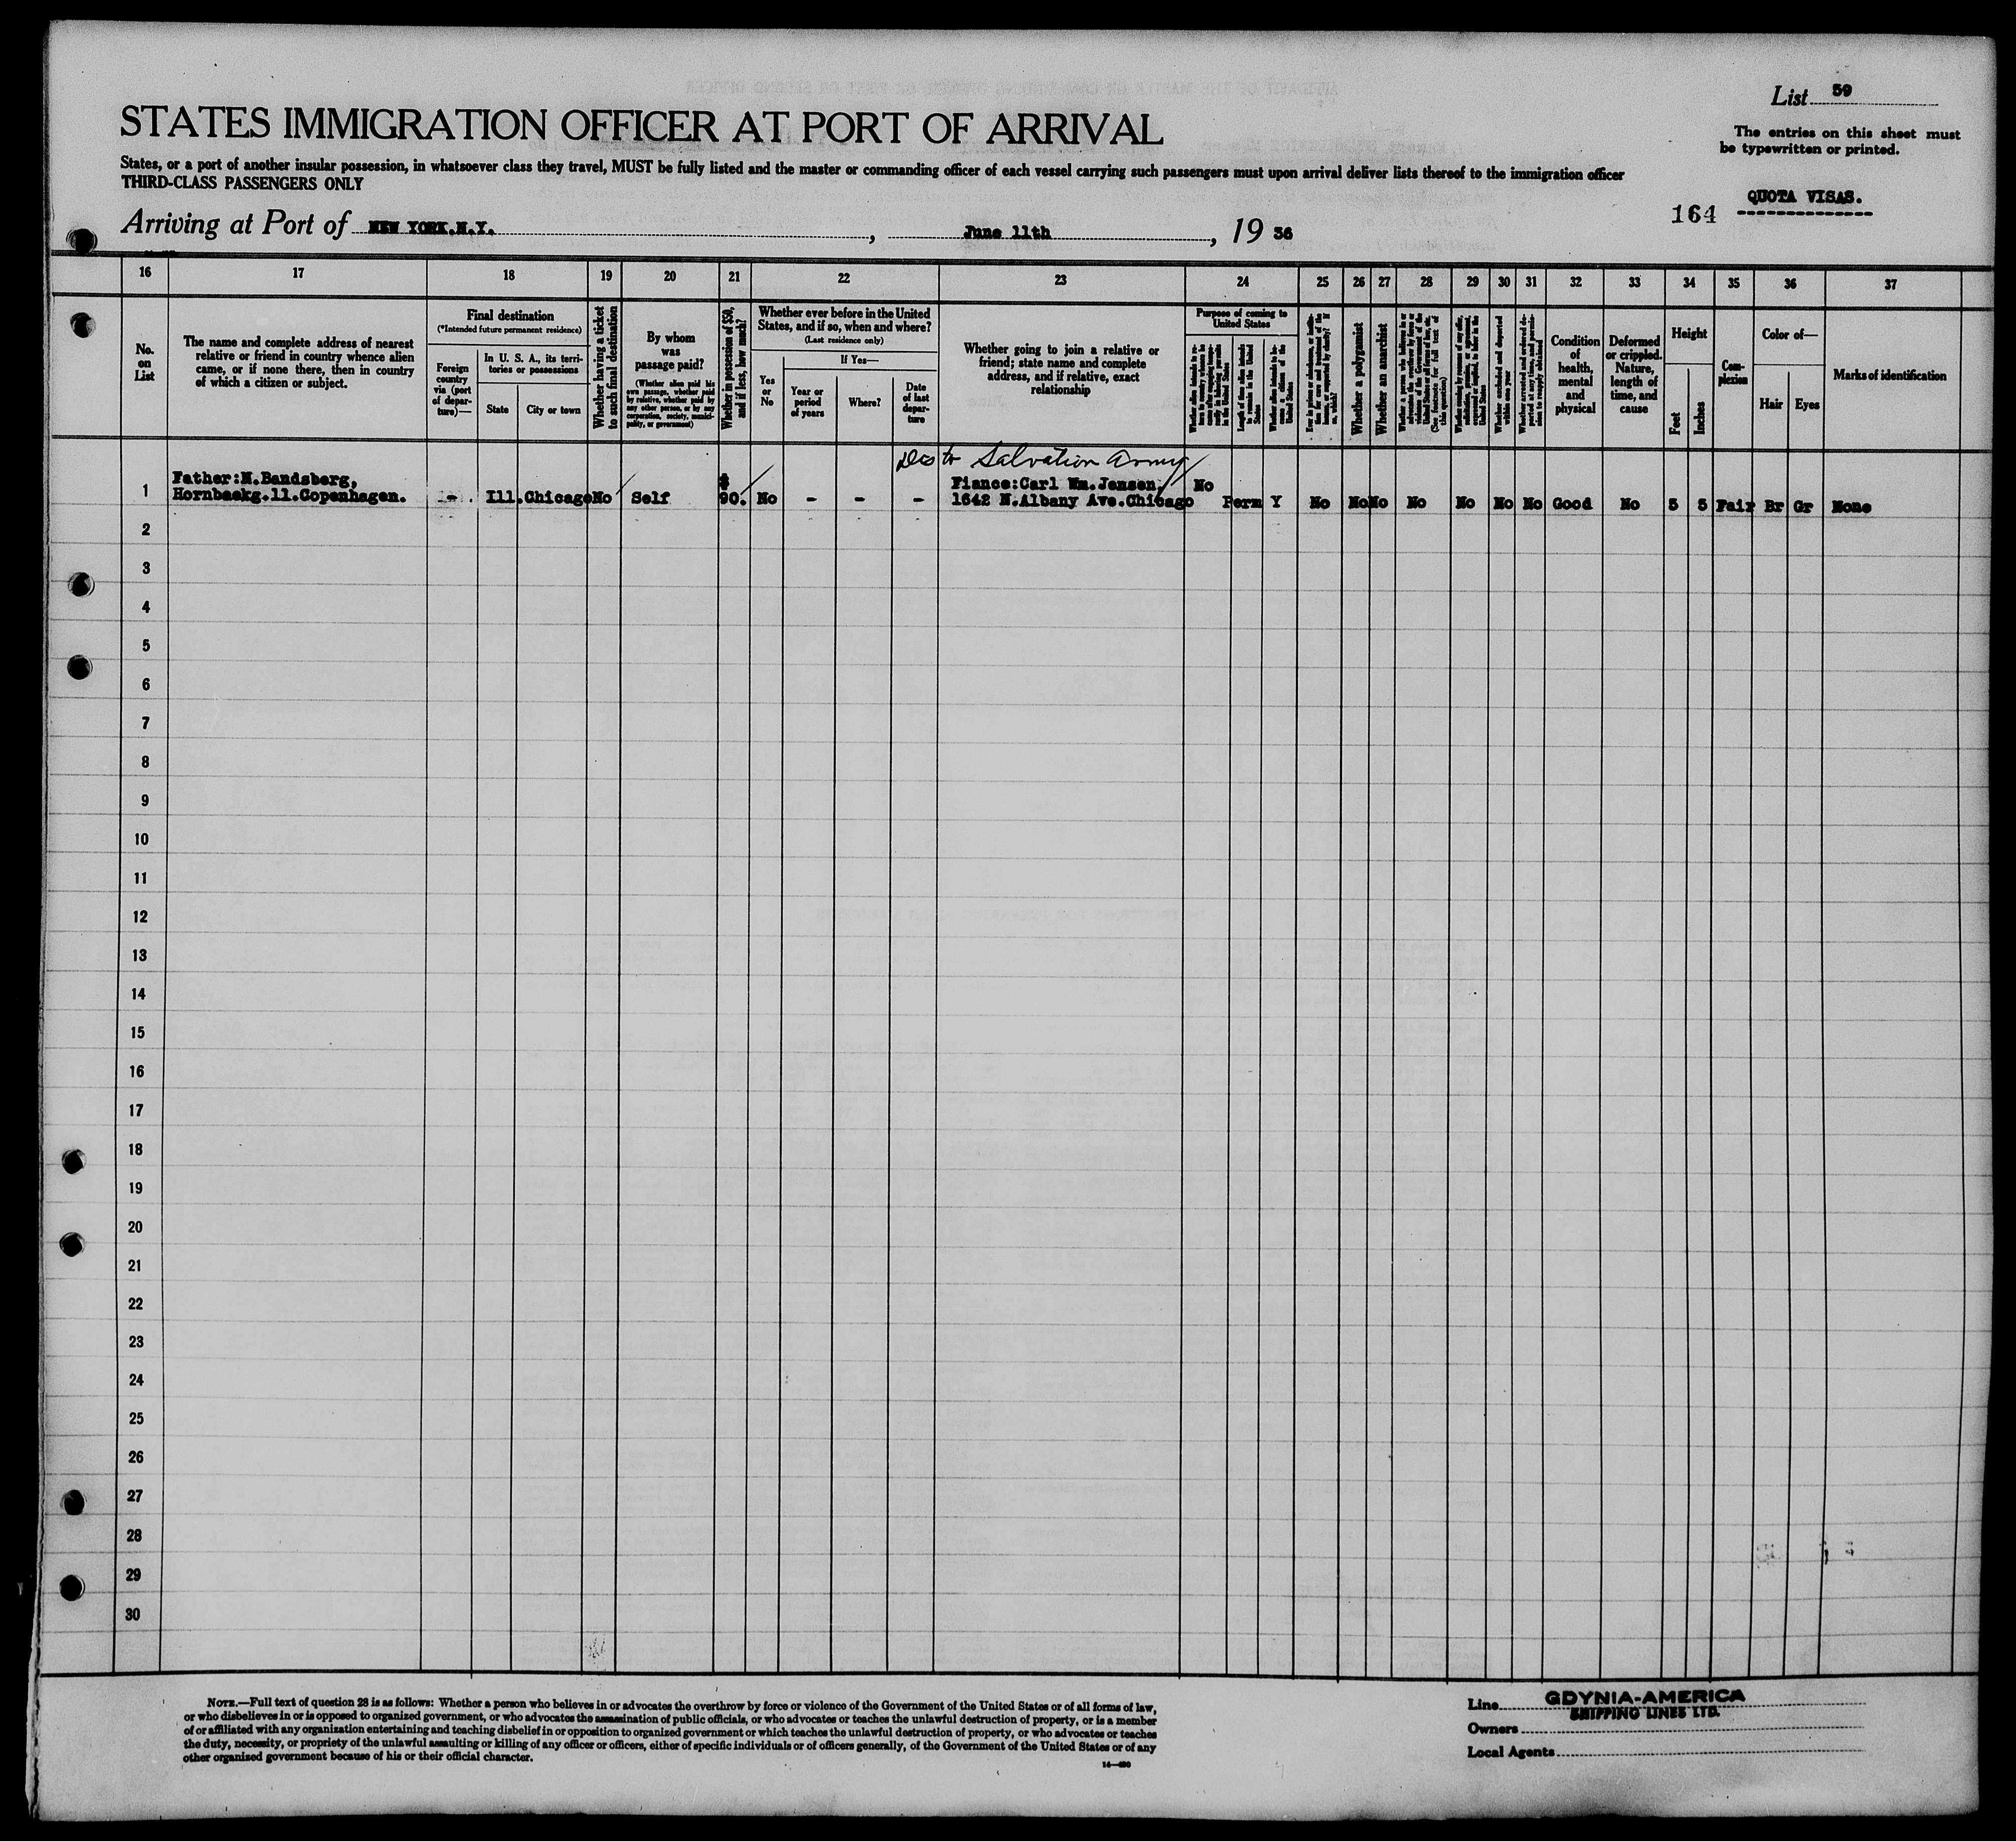 List 59
STATES IMMIGRATION OFFICER AT PORT OF ARRIVAL
The entries on this sheet must
be typewritten or printed.
States, or a port of another insular possession, in whatsoever class they travel, MUST be fully listed and the master or commanding officer of each vessel carrying such passengers must upon arrival deliver lists thereof to the immigration officer
THIRD-CLASS PASSENGERS ONLY
QUOTA VISAS.
164
Arriving at Port of NEW YORK.N.Y., June 11th, 19 36
16 17 18 19 20 21 22 23 24 25 26 27 28 29 30 31 32 33 34 35 36 37
No. on List
The name and complete address of nearest relative or friend in country whence alien came, or if none there, then in country of which a citizen or subject.
Final destination
(*Intended future permanent residence)
Foreign country via (port of departure)—
In U. S. A., its territories or possessions
State
City or town
Whether having a ticket to such final destination
By whom was passage paid?
(Whether alien paid his own passage, whether paid by relative, whether paid by any other person, or by any corporation, society, municipality, or government)
Whether in possession of $50, and if less, how much?
Whether ever before in the United States, and if so, when and where?
(Last residence only)
Yes or No
If Yes—
Year or period of years
Where?
Date of last departure
Whether going to join a relative or friend; state name and complete address, and if relative, exact relationship
Purpose of coming to United States
Length of time alien intends to remain in the United States
Whether alien intends to become a citizen of the United States
Whether a polygamist
Whether an anarchist
(See footnote for full text of this question)
Condition of health, mental and physical
Deformed or crippled. Nature, length of time, and cause
Height
Feet
Inches
Complexion
Color of—
Hair
Eyes
Marks of identification
Salvation Army
Father:N.Bandsberg, $ Fiance:Carl Wm.Jensen, No
1 Hornbaekg.11.Copenhagen. - Ill. Chicago No Self 90. No - - - 1642 N.Albany Ave.Chicago Perm Y No No No No No No No Good No 5 5 Fair Br Gr None
2
3
4
5
6
7
8
9
10
11
12
13
14
15
16
17
18
19
20
21
22
23
24
25
26
27
28
29
30
NOTE.—Full text of question 28 is as follows: Whether a person who believes in or advocates the overthrow by force or violence of the Government of the United States or of all forms of law,
or who disbelieves in or is opposed to organized government, or who advocates the assassination of public officials, or who advocates or teaches the unlawful destruction of property, or is a member
of or affiliated with any organization entertaining and teaching disbelief in or opposition to organized government or which teaches the unlawful destruction of property, or who advocates or teaches
the duty, necessity, or propriety of the unlawful assaulting or killing of any officer or officers, either of specific individuals or of officers generally, of the Government of the United States or of any
other organized government because of his or their official character.
Line GDYNIA-AMERICA
SHIPPING LINES LTD.
Owners
Local Agents